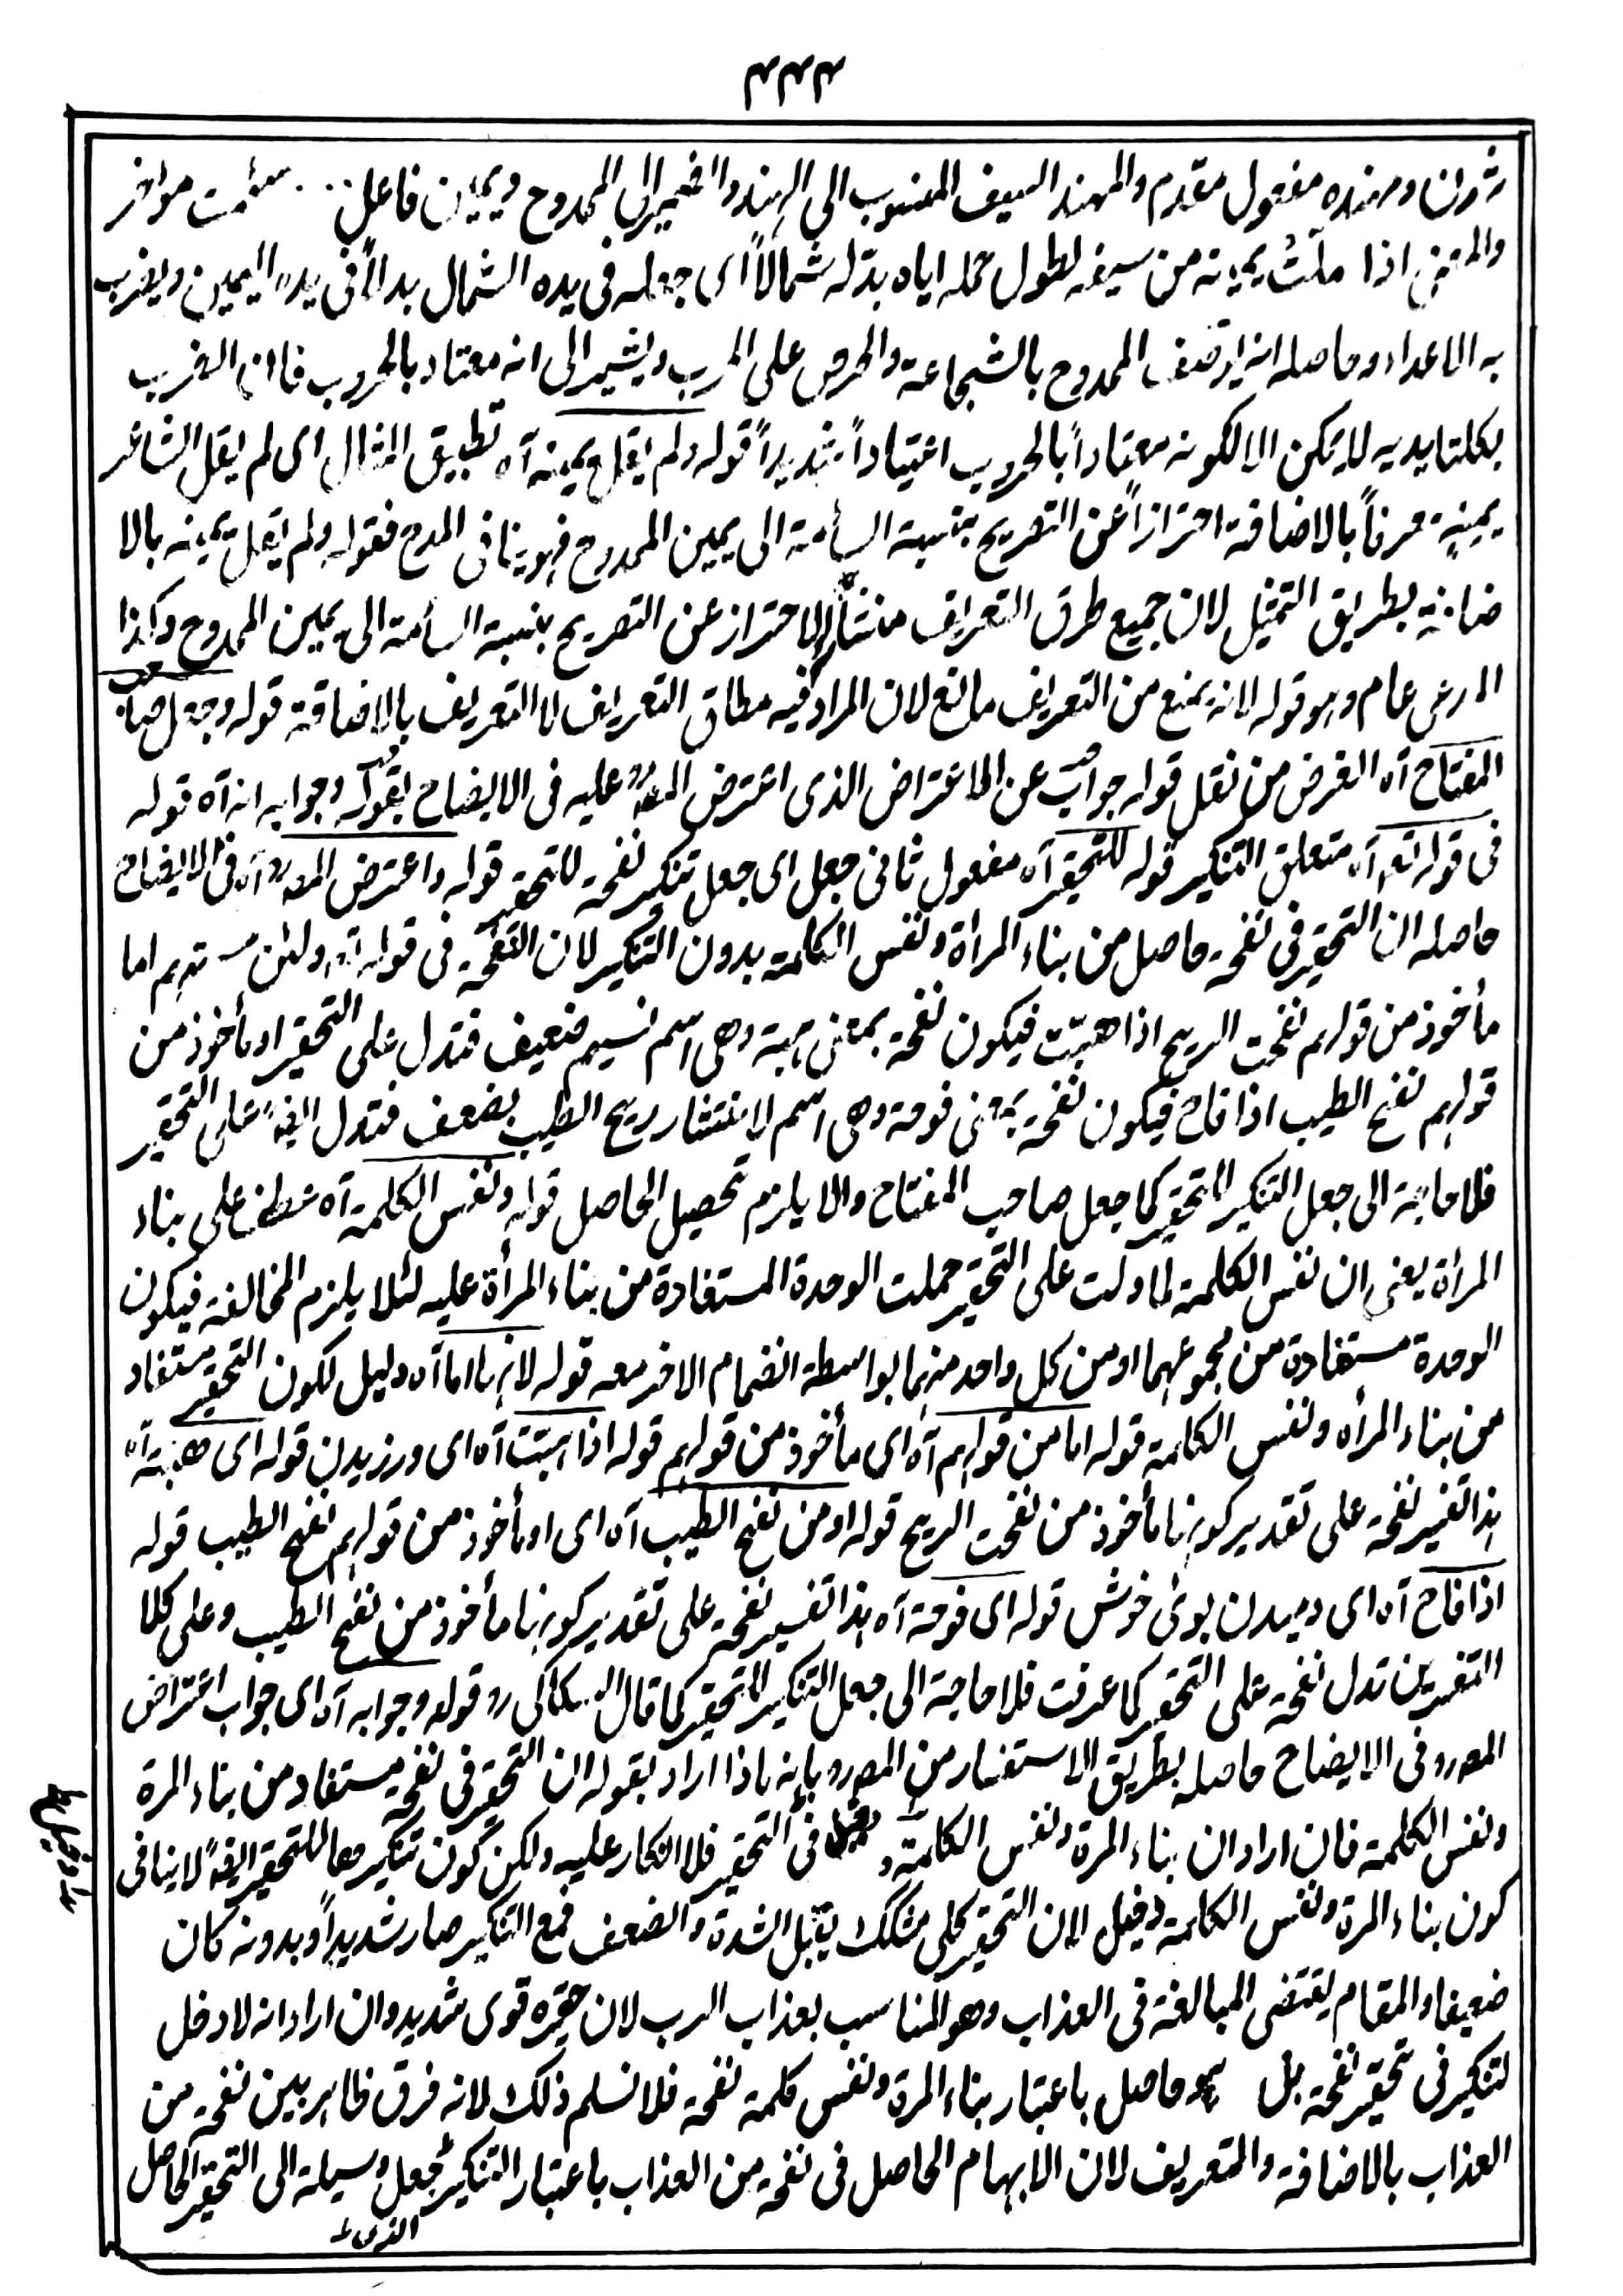 ۳۳۳
ومهنده مفعول مقدم والمهند السيف المنسوب الى الهند والضمير الى الممدوح ويمين فاعل سئمت مواخر
والمعنى اذا ملّت يمينه من سيفه لطول حمله اياه بدّله شمالاً اى جعله فى يده الشمال بدلاً فى يده اليمين ويضرب
به الاعداء وحاصله انه يوصف الممدوح بالشجاعة والحرص على الحرب ويشير الى انه معتاد بالحروب فان الضرب
بكلتا يديه لا يمكن الا لكونه معتاداً بالحروب اعتياداً شديداً قوله ولم يقل يمينه آه تطبيق المثال اى لم يقل الشاعر
يمينه معرفاً بالاضافة احترازاً عن التصريح بنسبة السأمة الى يمين الممدوح فهو ينافى المدح فقوله ولم يقل يمينه بالا
ضافة بطريق التمثيل لان جميع طرق التعريف منشأ للاحتراز عن التصريح بنسبة السأمة الى يمين الممدوح وكذا
المدعى عام وهو قوله لانه يمنع من التعريف مانع لان المراد فيه مطلق التعريف لا التعريف بالاضافة قوله وجعل صاحب
المفتاح آه الغرض من نقل قوله جواب عن الاعتراض الذى اعترض المصرد عليه فى الايضاح بقوله وجوابه انه آه قوله
فى قوله تع آه متعلق التنكير قوله للتحقير آه مفعول ثانى جعل اى جعل تنكير نفحة للتحقير قوله واعترض المصرد آه فى الايضاح
حاصله ان التحقير فى نفحة حاصل من بناء المرأة ونفس الكلمة بدون التنكير لان النفحة فى قوله تع ولئن مستهم اما
مأخوذ من قولهم نفحت الريح اذا هبّت فيكون نفحة بمعنى هبة وهى اسم نسيم ضعيف فتدل على التحقير او مأخوذ من
قولهم نفح الطيب اذا فاح فيكون نفحة بمعنى فوحة وهى اسم لانتشار ريح الطيب بضعف فتدل ايضاً على التحقير
فلا حاجة الى جعل التنكير للتحقير كما جعل صاحب المفتاح والا يلزم تحصيل الحاصل قوله ونفس الكلمة آه عطف على بناء
المرأة يعنى ان نفس الكلمة لما دلت على التحقير حملت الوحدة المستفادة من بناء المرأة عليه لئلا يلزم المخالفة فيكون
الوحدة مستفادة من مجموعهما او من كل واحد منهما بواسطة انضمام الاخر معه قوله لانها اما آه دليل لكون التحقير مستفاد
من بناء المرأه ونفس الكلمة قوله اما من قولهم آه اى مأخوذ من قولهم قوله اذا هبت آه اى ورزيدن قوله اى هبة آه
هذا تفسير نفحة على تقدير كونها مأخوذ من نفحت الريح قوله او من نفح الطيب آه اى او مأخوذ من قولهم نفح الطيب قوله
اذا فاح آه اى دميدن بوئ خوش قوله اى فوحة آه هذا تفسير نفحة على تقدير كونها مأخوذ من نفح الطيب وعلى كلا
التفسيرين تدل نفحة على التحقير كما عرفت فلا حاجة الى جعل التنكير للتحقير كما قال السكاكى رد قوله وجوابه آه اى جواب اعتراض
المصرد فى الايضاح حاصله بطريق الاستفسار من المصرد بانه ماذا اراد بقوله ان التحقير فى نفحة مستفاد من بناء المرة
ونفس الكلمة فان اراد ان بناء المرة ونفس الكلمة دخيل فى التحقير فلا انكار عليه ولكن كون تنكيرها للتحقير ايضاً لا ينافى
كون بناء المرة ونفس الكلمة دخيل لان التحقير كلى مشكك يقبل الشدة والضعف فمع التنكير صار شديداً وبدونه كان
ضعيفا والمقام يقتضى المبالغة فى العذاب وهو المناسب بعذاب الرب لان حقيره قوى شديد وان اراد انه لا دخل
لتنكير فى تحقير نفحة بل هو حاصل باعتبار بناء المرة ونفس كلمة نفحة فلا نسلم ذلك لانه فرق ظاهر بين نفحة من
العذاب بالاضافة والتعريف لان الابهام الحاصل فى نفحة من العذاب باعتبار التنكير يجعل وسيلة الى التحقير الحاصل